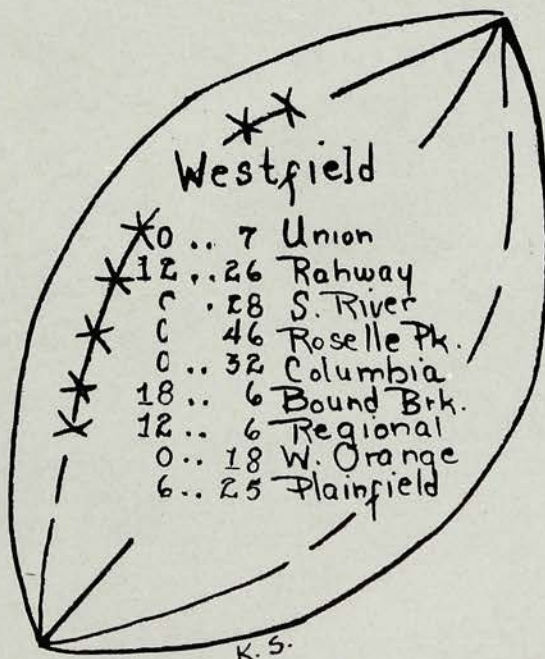 Westfield
0 .. 7 Union
12 .. 26 Rahway
0 . 28 S. River
0 46 Roselle Pk.
0 .. 32 Columbia
18 .. 6 Bound Brk.
12 .. 6 Regional
0 .. 18 W. Orange
6 .. 25 Plainfield
K. S.